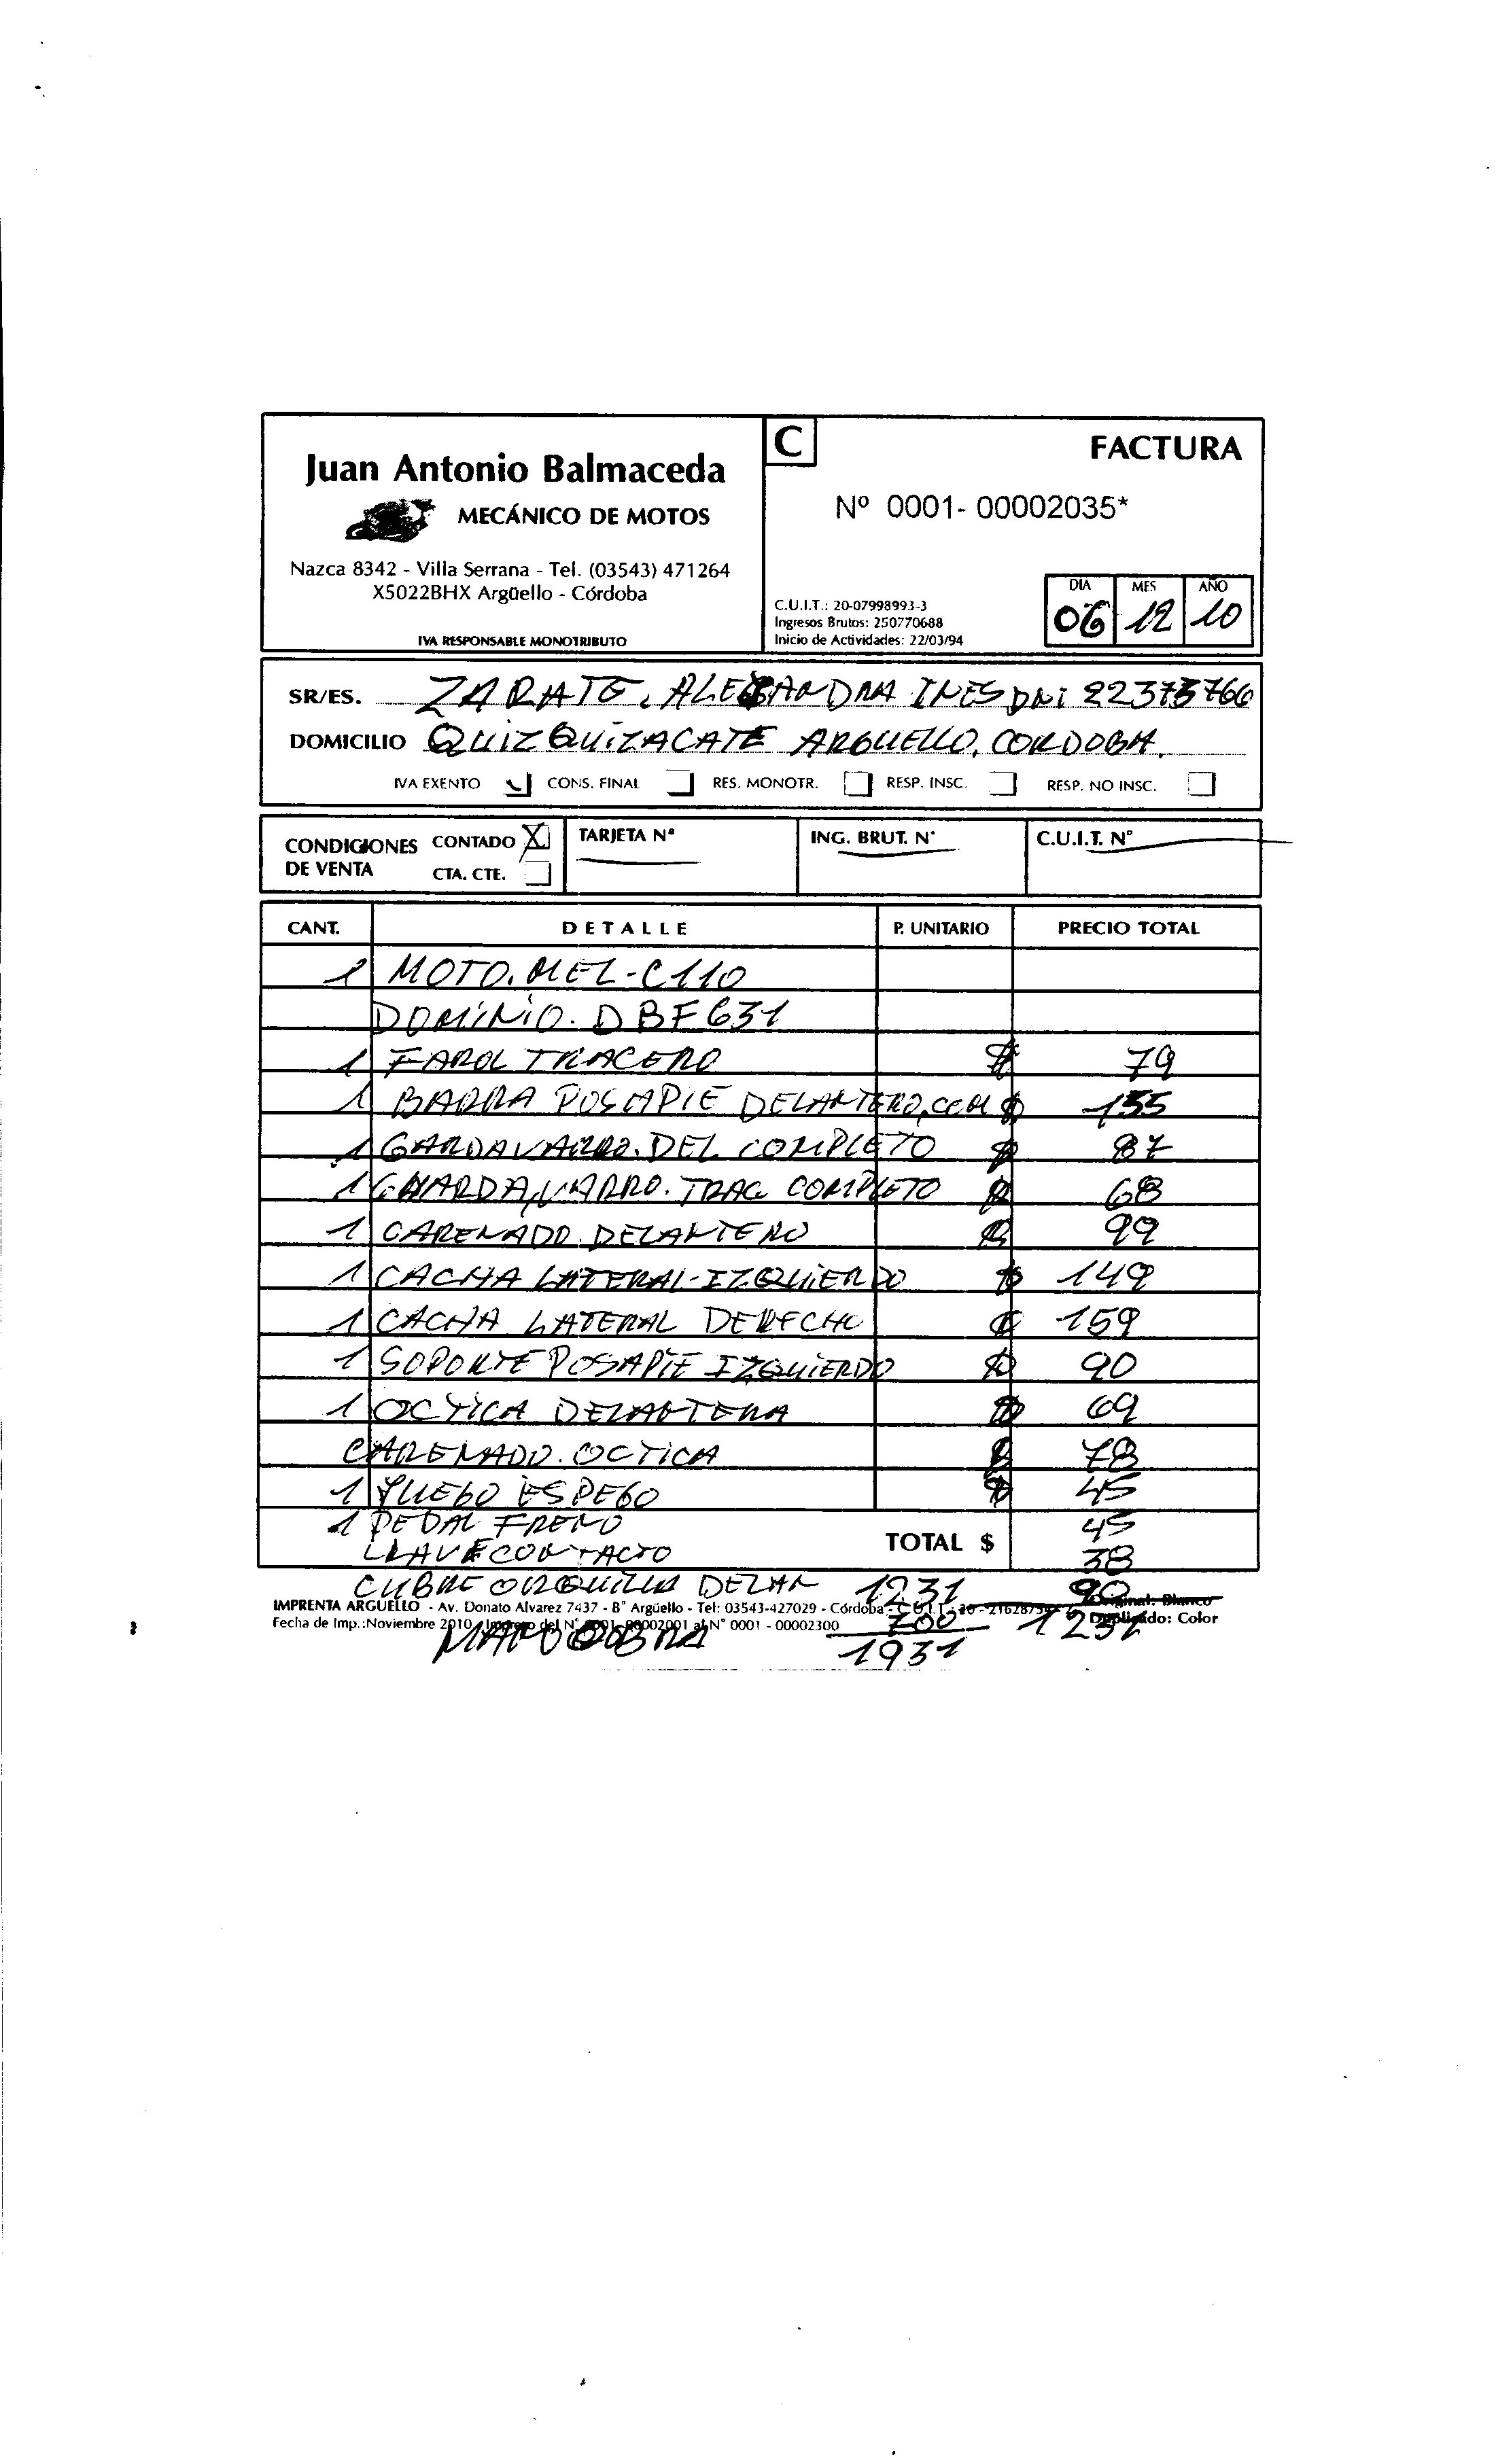 Juan Antonio Balmaceda
MECÁNICO DE MOTOS
Nazca 8342 - Villa Serrana - Tel. (03543) 471264
X5022BHX Argüello - Córdoba
IVA RESPONSABLE MONOTRIBUTO
C
FACTURA
Nº 0001- 00002035*
C.U.I.T.: 20-07998993-3
Ingresos Brutos: 250770688
Inicio de Actividades: 22/03/94
DIA MES AÑO
06 12 10
SR/ES. ZARATE, ALEXANDRA INES DNI 22373766
DOMICILIO QUIZQUIZACATE ARGUELLO, CORDOBA.
IVA EXENTO CONS. FINAL RES. MONOTR. RESP. INSC. RESP. NO INSC.
CONDICIONES DE VENTA
CONTADO X
CTA. CTE.
TARJETA Nº
ING. BRUT. Nº
C.U.I.T. Nº
CANT. DETALLE P. UNITARIO PRECIO TOTAL
1 MOTO. MEL-C110
DOMINIO. DBF631
1 FAROL TRACERO $ 79
1 BARRA POSAPIE DELANTERO, $ 155
1 GARDAVARRO. DEL COMPLETO $ 87
1 GUARDA,VARRO. TRAC COMPLETO $ 68
1 CARENADO. DELANTERO $ 99
1 CACHA LATERAL-IZQUIERDO $ 149
1 CACHA LATERAL DERECHO $ 159
1 SOPORTE POSAPIE IZQUIERDO $ 90
1 OCTICA DELANTERA $ 69
CARENADO. OCTICA $ 78
1 ESPEGO $ 45
1 PEDAL FRENO 45
LLAVE CONTACTO 38
TOTAL $
CUBRE ORQUILLA DELAN 1231 90
IMPRENTA ARGUELLO - Av. Donato Alvarez 7437 - Bº Argüello - Tel: 03543-427029 - Córdoba - C.U.I.T.: Original: Blanco
Fecha de Imp.:Noviembre 2010 - Impreso del Nº 0001-00002001 al Nº 0001 - 00002300 700 1231 Duplicado: Color
MANO OBRA 1931